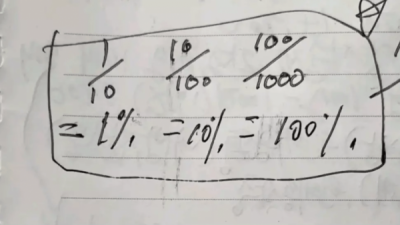 1/10 10/100 100/1000
= 1%, = 10%, = 100%.